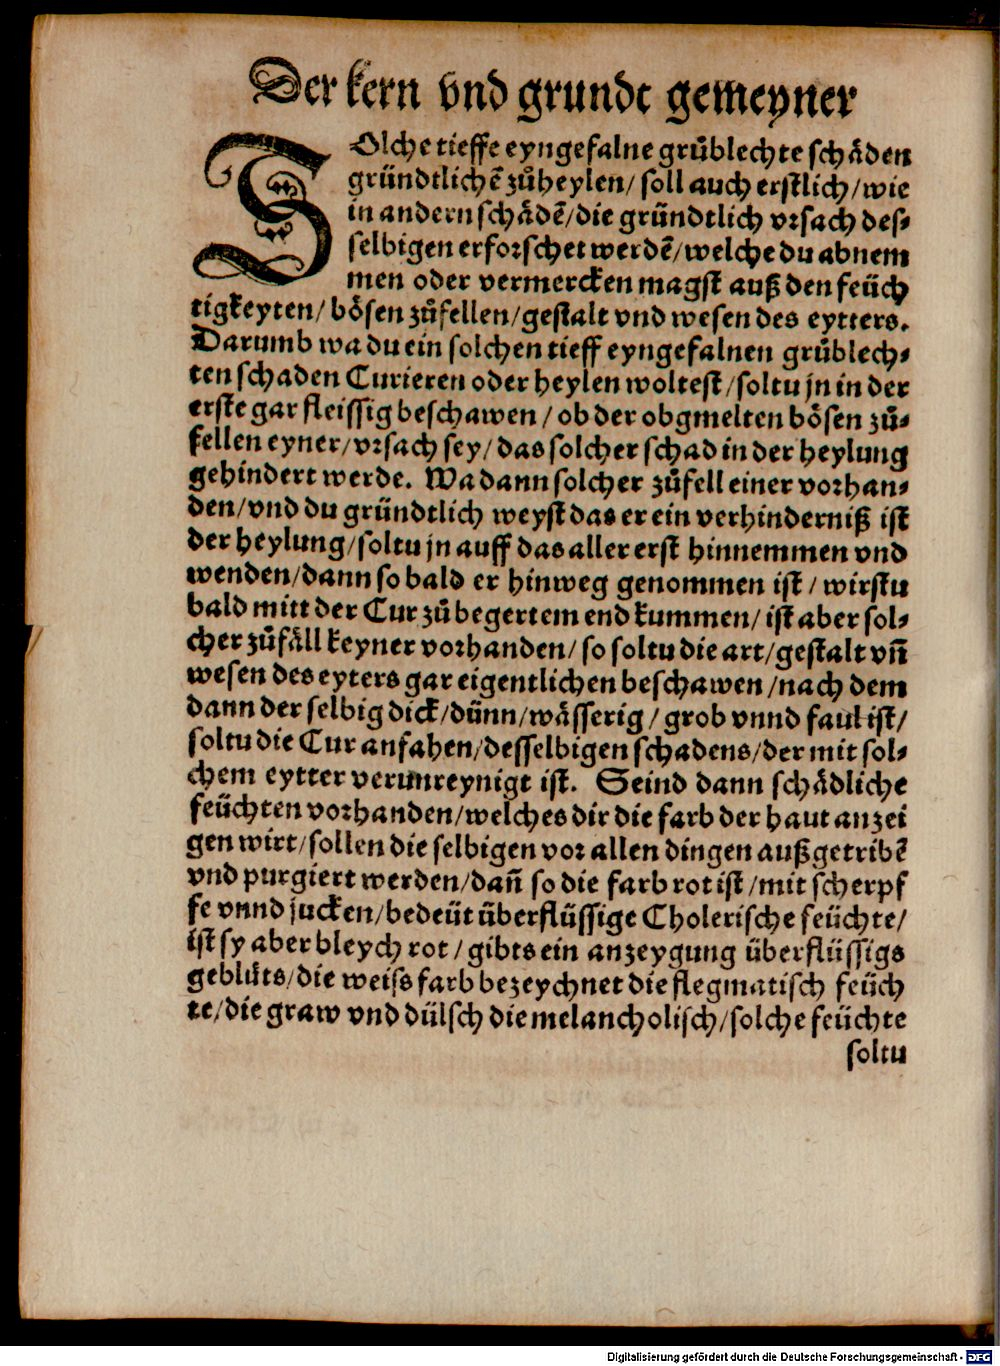 Der kern vnd grundt gemeyner
SOlche tieffe eyngefalne grůblechte schäden
gründtlichẽ zůheylen/ soll auch erstlich/ wie
in andern schädẽ/ die gründtlich vrsach des⸗
selbigen erforschet werdẽ/ welche du abnem
men oder vermercken magst auß den feüch
tigkeyten/ bösen zůfellen/ gestalt vnd wesen des eytters.
Darumb wa du ein solchen tieff eyngefalnen grůblech⸗
ten schaden Curieren oder heylen woltest/ soltu jn in der
erste gar fleissig beschawen/ ob der obgmelten bösen zů⸗
fellen eyner/ vrsach sey/ das solcher schad in der heylung
gehindert werde. Wa dann solcher zůfell einer vorhan⸗
den/ vnd du gründtlich weyst das er ein verhinderniß ist
der heylung/ soltu jn auff das aller erst hinnemmen vnd
wenden/ dann so bald er hinweg genommen ist/ wirstu
bald mitt der Cur zů begertem end kummen/ ist aber sol⸗
cher zůfäll keyner vorhanden/ so soltu die art/ gestalt vñ
wesen des eyters gar eigentlichen beschawen/ nach dem
dann der selbig dick/ dünn/ wässerig/ grob vnnd faul ist/
soltu die Cur anfahen/ desselbigen schadens/ der mit sol⸗
chem eytter verunreynigt ist. Seind dann schädliche
feüchten vorhanden/ welches dir die farb der haut anzei
gen wirt/ sollen die selbigen vor allen dingen außgetribẽ
vnd purgiert werden/ dañ so die farb rot ist/ mit scherpf
fe vnnd jucken/ bedeüt überflüssige Cholerische feüchte/
ist sy aber bleych rot/ gibts ein anzeygung überflüssigs
geblüts/ die weiss farb bezeychnet die flegmatisch feüch
te/ die graw vnd dülsch die melancholisch/ solche feüchte
soltu
Digitalisierung gefördert durch die Deutsche Forschungsgemeinschaft - DFG